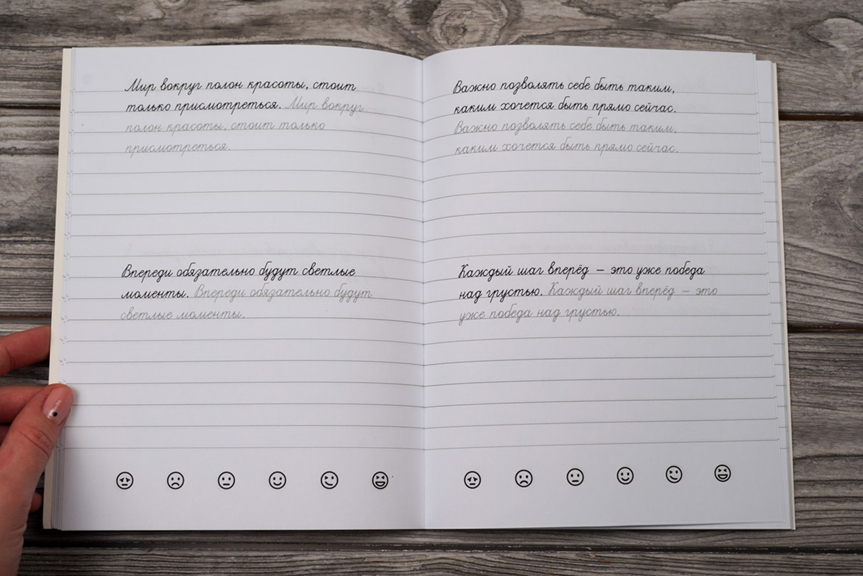 Мир вокруг полон красоты, стоит
только присмотреться. Мир вокруг
полон красоты, стоит только
присмотреться.
Впереди обязательно будут светлые
моменты. Впереди обязательно будут
светлые моменты.
Важно позволять себе быть таким,
каким хочется быть прямо сейчас.
Важно позволять себе быть таким,
каким хочется быть прямо сейчас.
Каждый шаг вперёд – это уже победа
над грустью. Каждый шаг вперёд – это
уже победа над грустью.